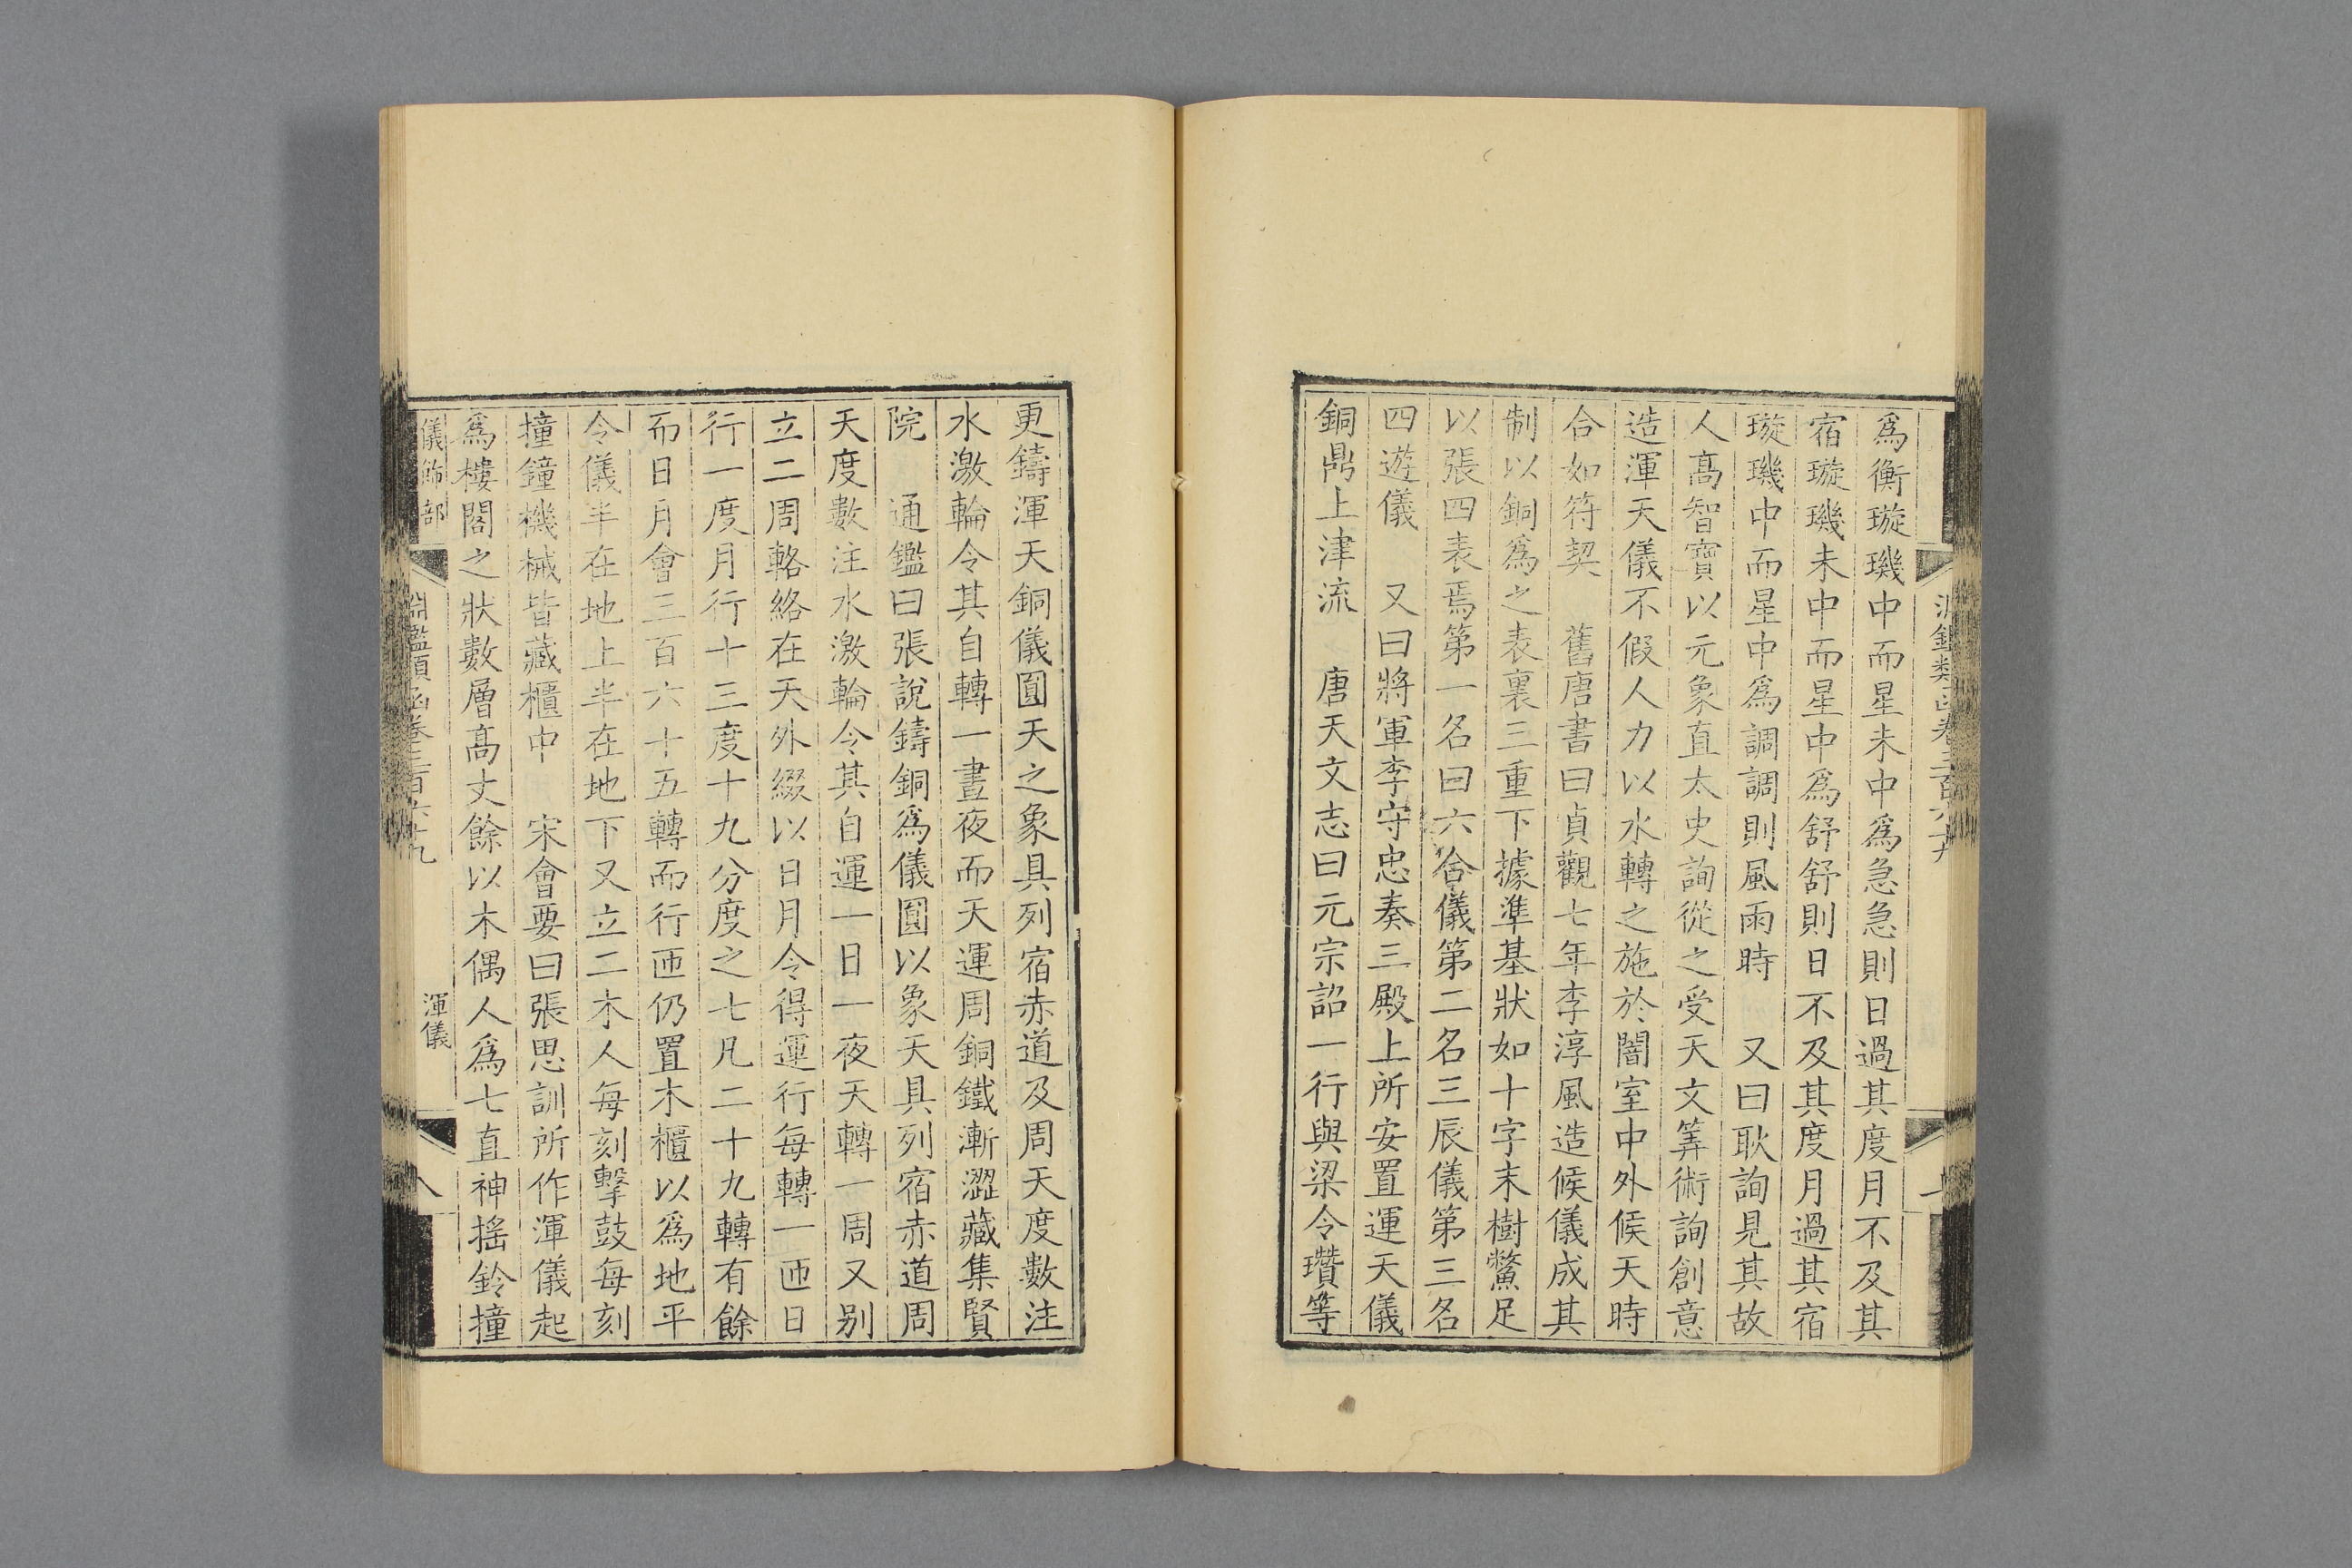 爲衡璇璣中而星未中爲急急則日過其度月不及其
宿璇璣未中而星中爲舒舒則日不及其度月過其宿
璇璣中而星中爲調調則風雨時　又曰耿詢見其故
人高智寶以元象直太史詢從之受天文筭術詢創意
造渾天儀不假人力以水轉之施於闇室中外候天時
合如符契　舊唐書曰貞觀七年李淳風造候儀成其
制以銅爲之表裏三重下據準基狀如十字末樹鰲足
以張四表焉第一名曰六合儀第二名三辰儀第三名
四遊儀　又曰將軍李守忠奏三殿上所安置運天儀
銅鼎上津流　唐天文志曰元宗詔一行與梁令瓚等
更鑄渾天銅儀圓天之象具列宿赤道及周天度數注
水激輪令其自轉一晝夜而天運周銅鐵漸澀藏集賢
院　通鑑曰張說鑄銅爲儀圓以象天具列宿赤道周
天度數注水激輪令其自運一日一夜天轉一周又别
立二周輅絡在天外綴以日月令得運行每轉一匝日
行一度月行十三度十九分度之七凡二十九轉有餘
而日月會三百六十五轉而行匝仍置木櫃以爲地平
令儀半在地上半在地下又立二木人每刻擊鼓每刻
撞鐘機械皆藏櫃中　宋會要曰張思訓所作渾儀起
爲樓閣之狀數層高丈餘以木偶人爲七直神搖鈴撞
儀飾部　淵鑑類函卷三百六十九　渾儀　八